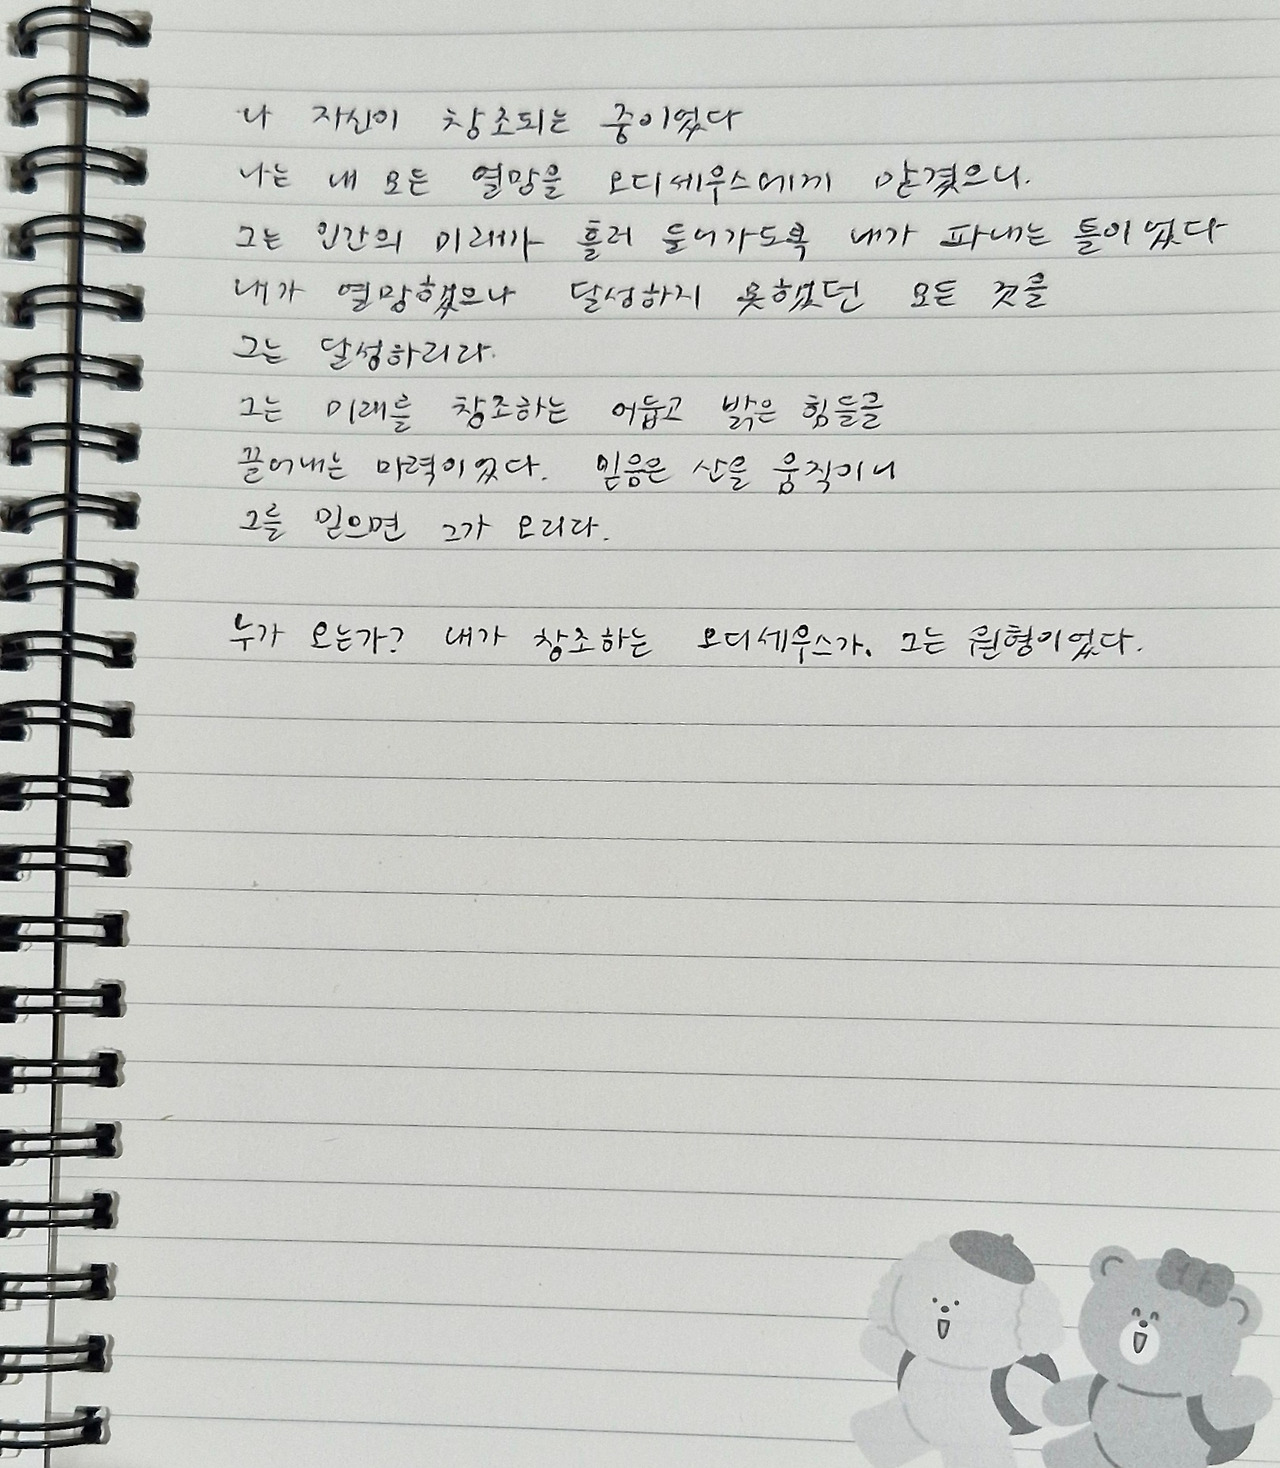 나 자신이 창조되는 중이었다
나는 내 모든 열망을 오디세우스에게 맡겼으니.
그는 인간의 미래가 흘러 들어가도록 내가 파내는 틀이었다
내가 열망했으나 달성하지 못했던 모든 것을
그는 달성하리라.
그는 미래를 창조하는 어둡고 밝은 힘들을
끌어내는 마력이었다. 믿음은 산을 움직이니
그를 믿으면 그가 오리다.
누가 오는가? 내가 창조하는 오디세우스가. 그는 원형이었다.